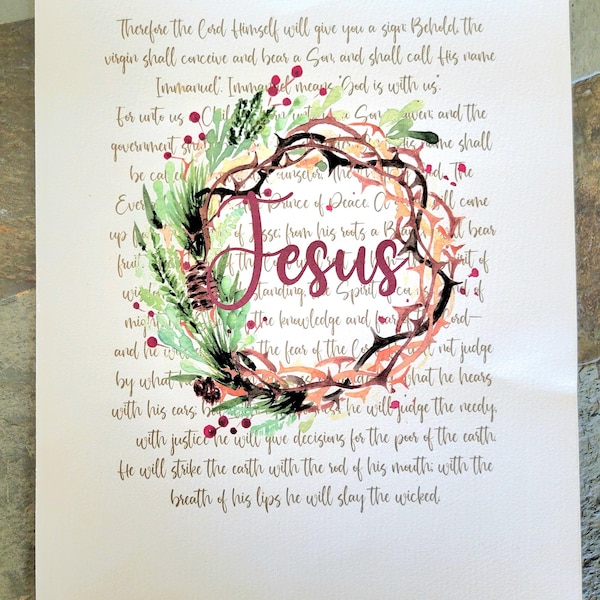 Therefore the Lord Himself will give you a sign: Behold, the
virgin shall conceive and bear a Son, and shall call His name
Immanuel". Immanuel means "God is with us".
For unto us a Child born, unto us a Son given; and the
government his name shall
be called Counselor, The
Ever Prince of Peace. A will come
up of Jesse; from his roots a will bear
fruit of
Jesus
wi standing, the Spirit of couns of
might, the knowledge and fear the Lord—
and he will the fear of the Lord. not judge
by what what he hears
with his ears; he will judge the needy,
with justice he will give decisions for the poor of the earth.
He will strike the earth with the rod of his mouth; with the
breath of his lips he will slay the wicked.